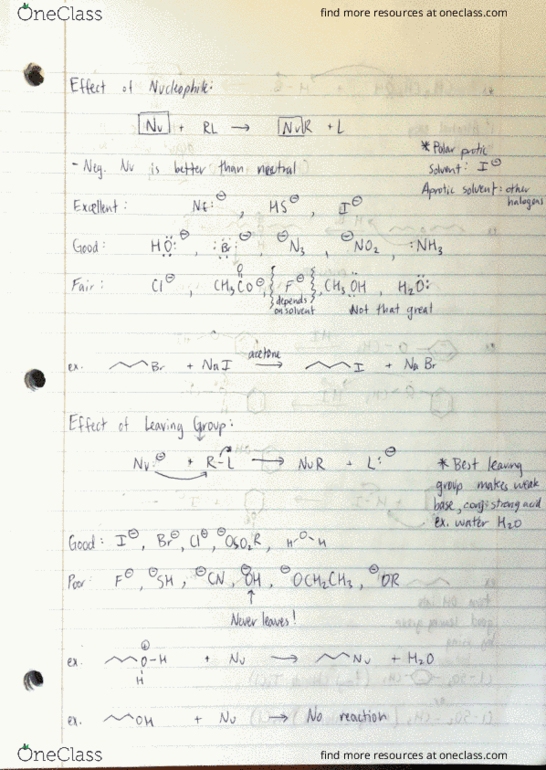 OneClass find more resources at oneclass.com
Effect of Nucleophile:
Nu + RL → NuR + L
* Polar protic
solvent: I⊖
Aprotic solvent: other
halogens
- Neg. Nu is better than neutral
Excellent: HS⊖, I⊖
Good: HÖ:⊖, :Br:⊖, ⊖N₃, ⊖NO₂, :NH₃
Fair: Cl⊖, CH₃CO⊖, F⊖, CH₃ÖH, H₂Ö:
depends
on solvent
Not that great
ex. Br + NaI acetone → I + NaBr
Effect of Leaving Group:
Nu:⊖ + R-L → NuR + L:⊖
* Best leaving
group makes weak
base, conj. strong acid
ex. water H₂O
Good: I⊖, Br⊖, Cl⊖, ⊖OSO₂R, H O H
Poor: F⊖, ⊖SH, ⊖CN, ⊖OH, ⊖OCH₂CH₃, ⊖OR
↑
Never leaves!
ex. ⊕O-H + Nu → Nu + H₂O
H
ex. OH + Nu → No reaction
OneClass find more resources at oneclass.com